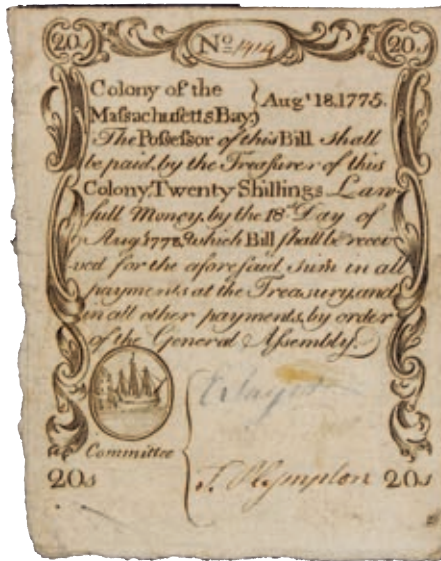 20s No 1414 20s
Colony of the
Massachusetts Bay } Augt 18, 1775.
The Possessor of this Bill shall
be paid, by the Treasurer of this
Colony, Twenty Shillings Law-
full Money, by the 18th Day of
Augt 1778, which Bill shall be recei-
ved for the aforesaid sum in all
payments at the Treasury, and
in all other payments, by order
of the General Assembly.
Committee
T. Plympton
20s 20s